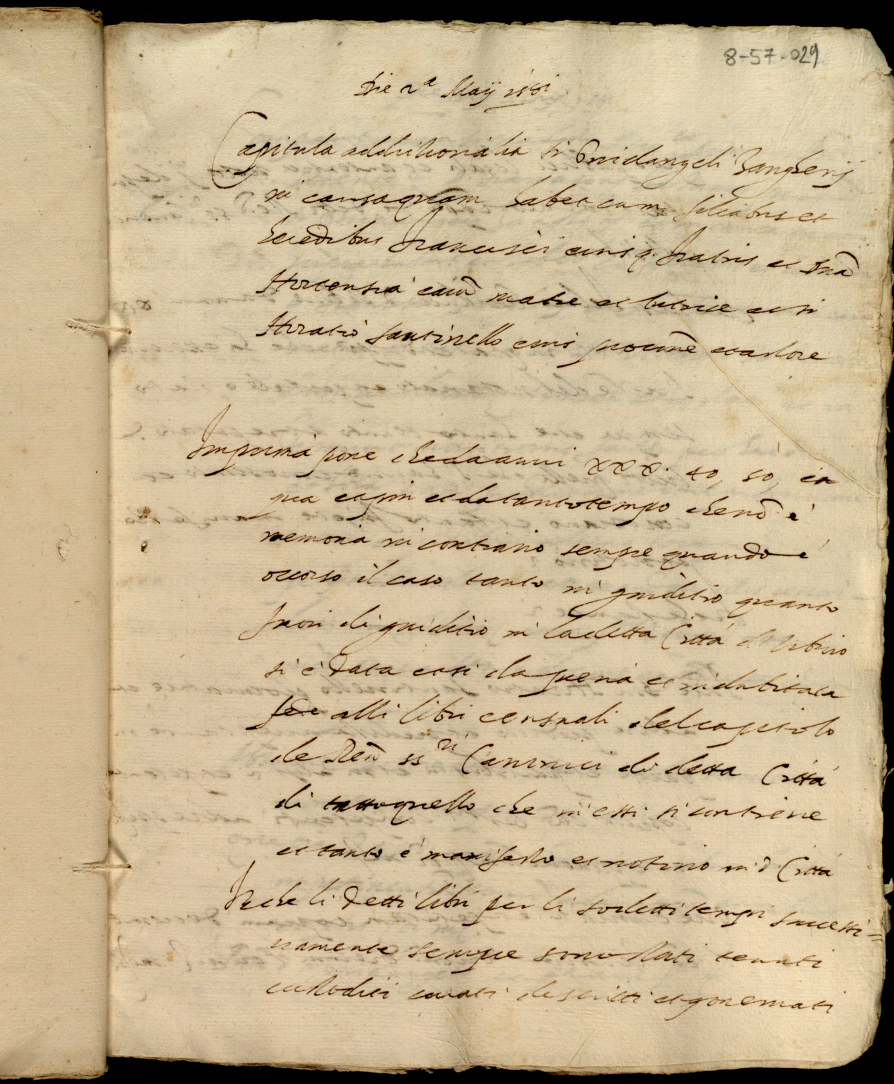 8-57-029
Die 2ª Maij 1581
Capitula additionalia D. Guidangeli Zangherij
in causa quam habet cum filiabus et
heredibus Francisci eius q. fratris et Dña
Hortensia earũ matre et tutrice et D.
Horatio Santinello eius procure et actore
Imprima pone che da anni XXX. 40, 50, 60
piu et da tanto tempo che nõ è
memoria in contrario sempre quando è
occorso il caso tanto in giuditio quanto
fuori di giuditio in la detta Città d'Urbino
si è data et si da piena et indubitata
fede alli libri censuali del capitolo
de Reũ ss.ri Canonici di detta Città
di tutto quello che in essi si contiene
et tanto è manifesto et notorio in d. Città
It. che li detti libri per li sodetti tempi successi=
vamente sempre sono stati tenuti
custoditi scritti et governati